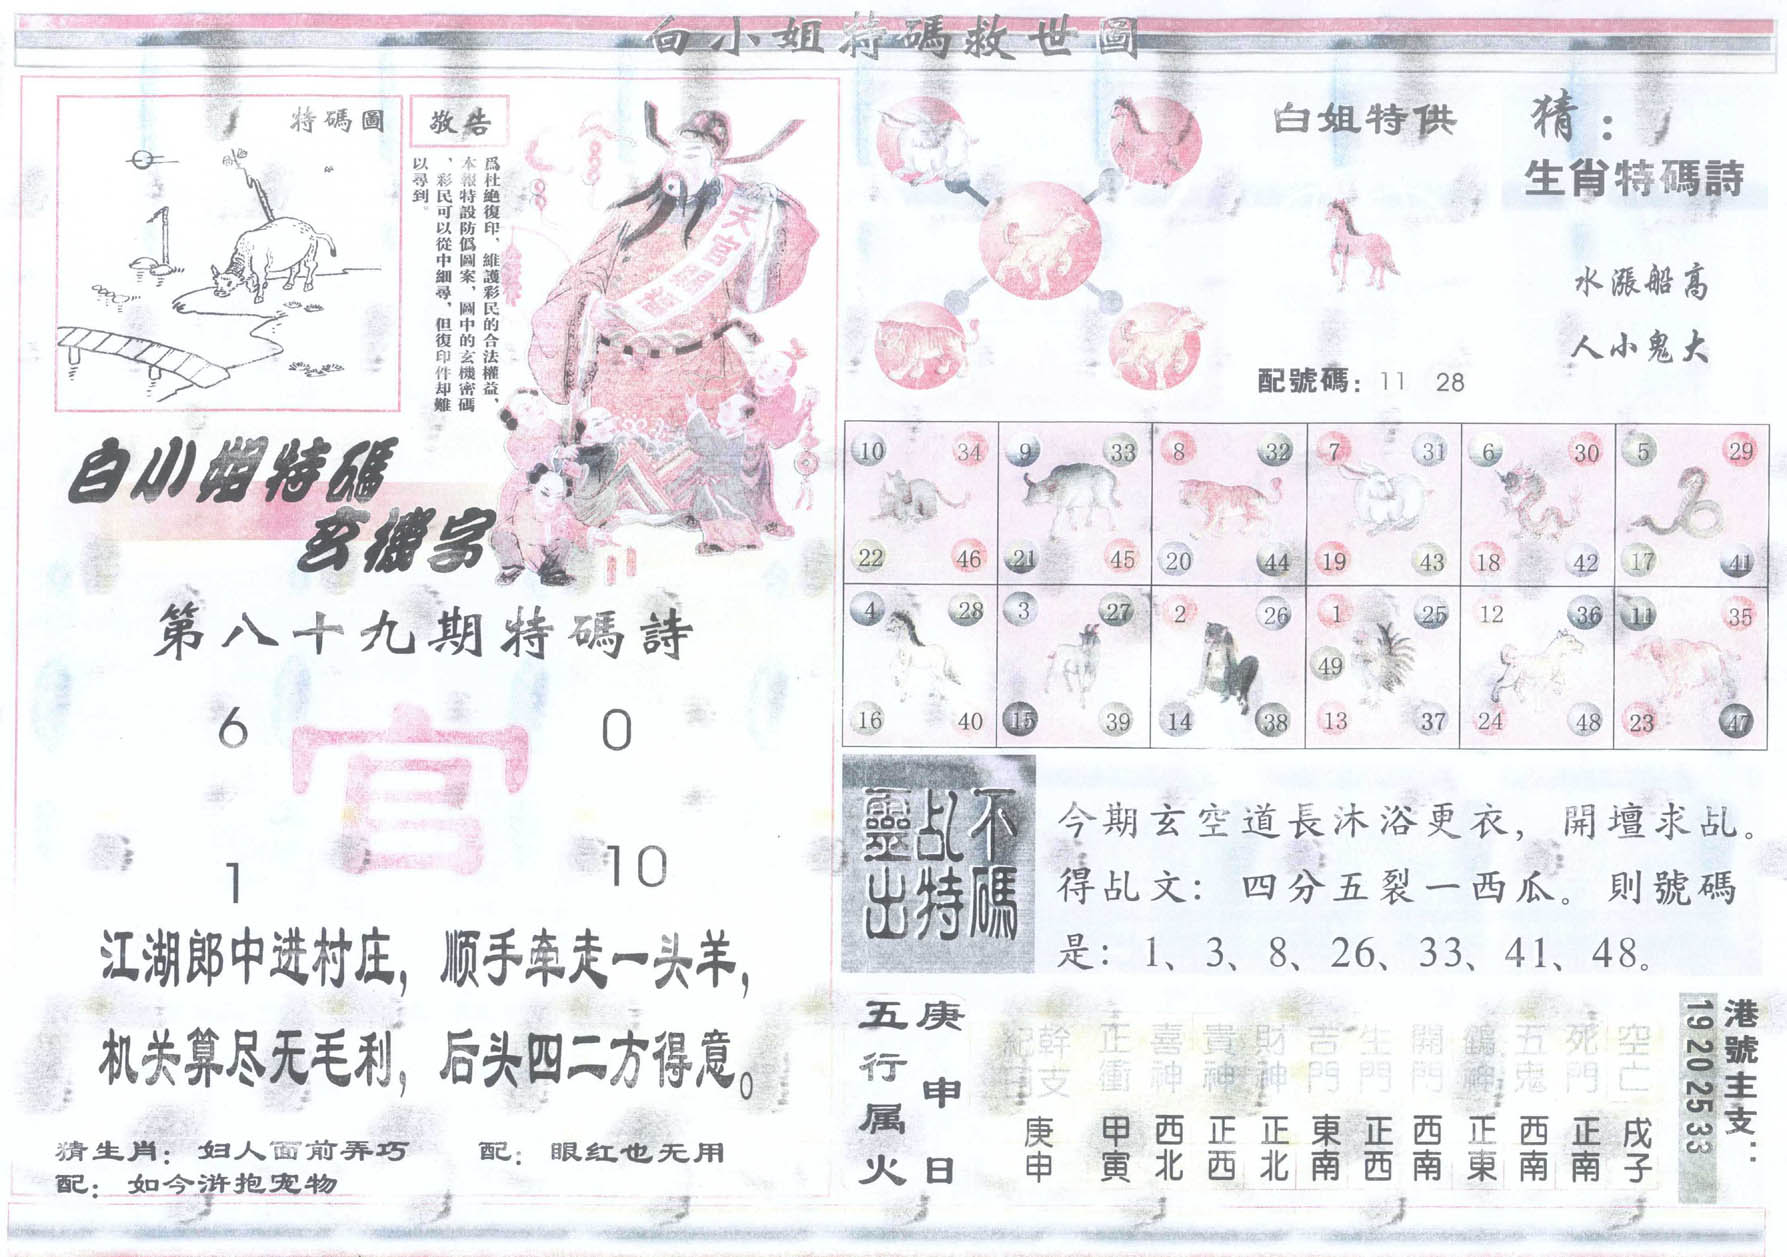 白小姐特碼救世圖
特碼圖
敬告
爲杜絶復印、維護彩民的合法權益、
本報特設防僞圖案，圖中的玄機密碼
、彩民可以從中細尋，但復印件却難
以尋到。
天官賜福
白小姐特碼
玄機字
第八十九期特碼詩
6
0
官
1
10
江湖郎中进村庄，顺手牵走一头羊，
机关算尽无毛利，后头四二方得意。
猜生肖：妇人面前弄巧 配：眼红也无用
配：如今浒抱宠物
白姐特供
猜：
生肖特碼詩
水漲船高
人小鬼大
配號碼：11 28
10 34 9 33 8 32 7 31 6 30 5 29
22 46 21 45 20 44 19 43 18 42 17 41
4 28 3 27 2 26 1 25 12 36 11 35
49
16 40 15 39 14 38 13 37 24 48 23 47
不碼
乩特
靈出
今期玄空道長沐浴更衣，開壇求乩。
得乩文：四分五裂一西瓜。則號碼
是：1、3、8、26、33、41、48。
庚申日
五行属火
幹支
正衝 喜神 貴神 財神 吉門 生門 開門 鶴神 五鬼 死門 空亡
庚申 甲寅 西北 正西 正北 東南 正西 西南 正東 西南 正南 戌子
港號主支：
19 20 25 33